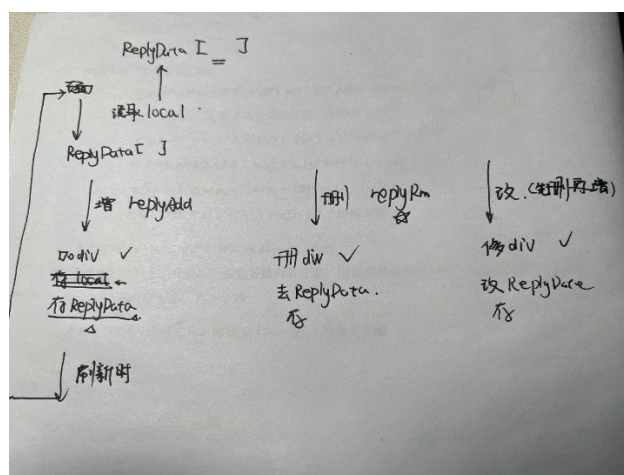 ReplyData [ _ ]
页面
读取 local
ReplyData [ ]
增 replyAdd
加div ✓
存local
存ReplyData
刷新时
删 replyRm
删div ✓
去ReplyData.
存
改.(先删再增)
修div ✓
改ReplyData
存